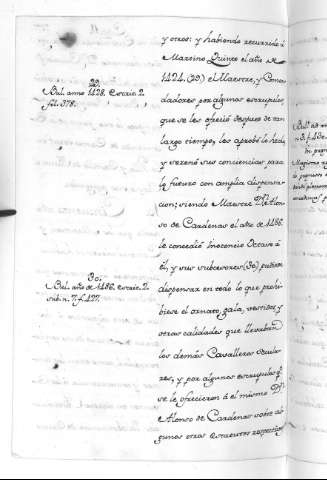 y otros: y habiendo recurrido á
Martino Quinto el año de
1424. (29) el Maestre, y Comen
dadores por algunos escrupulos,
que se les ofreció despues de tan
largo tiempo, les aprobó lo hecho,
y serenó sus conciencias para
lo futuro con amplia dispensa-
cion; siendo Maestre Dn. Alon-
so de Cardenas el año de 1486.
le concedió Inocencio Octavo á
él, y sus subcesores (30) pudiesen
dispensar en todo lo que prohi-
biese el ornato, gala, vestidos, y
otras calidades que llevaban
los demás Cavalleros Secula-
res, y por algunos escrupulos qe.
se le ofrecieron á el mismo Dn.
Alonso de Cardenas sobre al-
gunos otros
29.
Bul. anno 1428. Scrip. 2
fol. 378.
30.
Bul. año de 1486. Scrip. 2.
sub n. 7. f. 427.